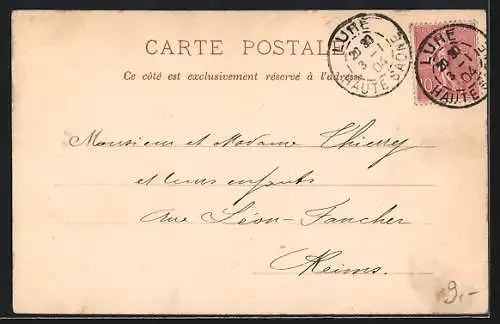 CARTE POSTALE
Ce côté est exclusivement réservé à l'adresse
LURE
20 30
3 - 1
04
HAUTE-SAONE
LURE
20 30
3 - 1
04
HAUTE-SAONE
10
Monsieur et Madame Thierry
et leurs enfants
Rue Léon-Faucher
Reims.
9.-